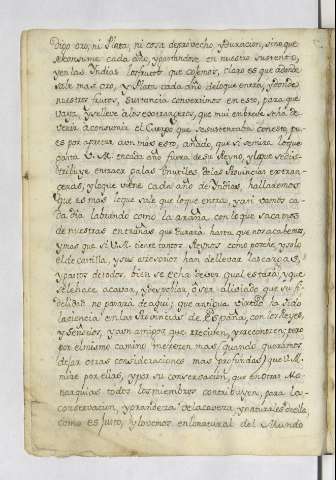 Digo oro, ni Plata, ni cosa de provecho, y duracion, sino que
se consume cada año, y gastandose en nuestro sustento,
y en las Indias los frutos que cojemos, claro es que a donde
sale mas oro, y Plata cada año de lo que entra, y donde
nuestros frutos, y sustancia convertimos en esto, para que
vaya, y se lleve a los extrangeros, que mui en breve se ha de
venir a consumir el Cuerpo que se sustentaba con esto, pu-
es por apretar aun más esto, añado, que si se mira lo que
gasta V. M. en cada año fuera de su Reyno, y lo que se dis-
tribuye en traer palas inutiles de las Provincias extran-
geras, y lo que viene cada año de Indias, hallaremos
que es mas lo que sale que lo que entra, y asi vamos ca-
da dia labrando como la araña, con lo que sacamos
de nuestras entrañas, que durará hasta que nos acabemos,
y mas que si V. M. tiene tantos Reynos como posehe, y solo
el de Castilla, y sus accesorios han de llevar las cargas,
y gastos de todos, bien se echa de ver qual estará, y que
se le hace acavar, y desvoblar, o ser aliviado que su fi-
delidad no parará de aqui; que antigua virtud ha sido
la ciencia en las Provincias de España, con los Reyes,
y Señorios, y aun amigos que reciven, y reconocen; pero
por el mismo camino merecen mas, quando queramos
dejar otras consideraciones mas profundas, que V. M.
mire por ellas, y por su conservacion, que en otras Mo-
narquias todos los miembros contribuyen, para la
conservacion, y grandeza de la cavera, y naturales de ella,
como es justo, y lo vemos en lo natural del Mundo